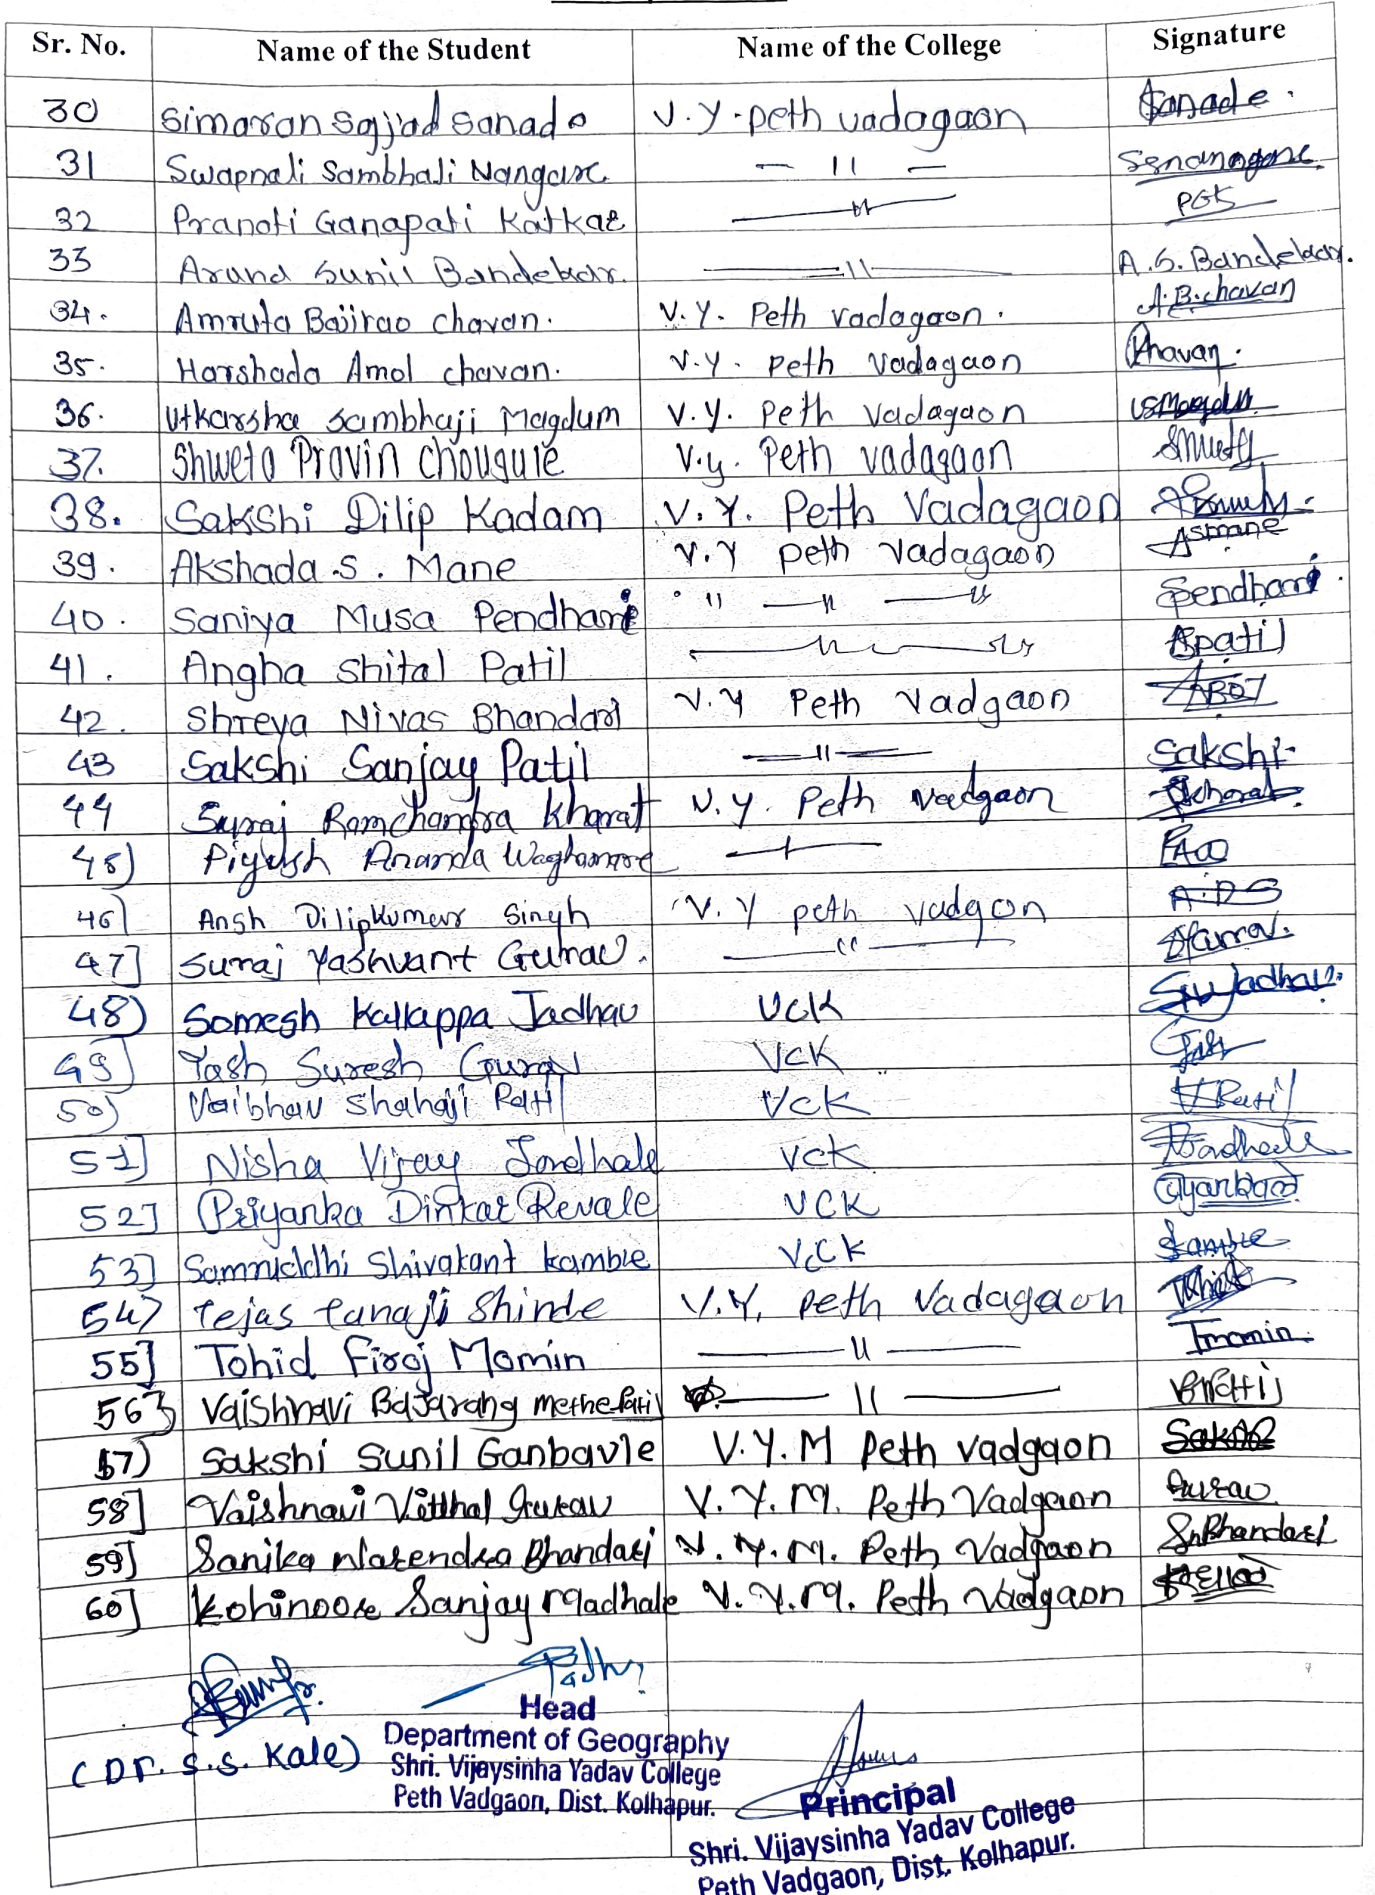 Sr. No. Name of the Student Name of the College Signature
30 Simaran Sajjad Sanade V.Y. peth vadagaon Sanade.
31 Swapnali Sambhaji Nangare — 11 —
32 Pranoti Ganapati Katkar — 11 — PGK
33 Arund Sunil Bandekar. — 11 — A.S. Bandekar.
34. Amruta Bajirao chavan. V.Y. Peth vadagaon. A.B.chavan
35. Harshada Amol chavan. V.Y. peth vadagaon Chavan.
36. Utkarsha Sambhaji Magdum V.Y. peth vadagaon USMagdum
37. Shweta Pravin Chougule V.y. Peth vadagaon
38. Sakshi Dilip Kadam V.Y. Peth Vadagaon
39. Akshada .S. Mane V.Y peth vadagaon Asmane
40. Saniya Musa Pendhari " — " — " Spendhari.
41. Angha Shital Patil — " — " Apatil
42. Shreya Nivas Bhandari V.Y Peth Vadgaon
43 Sakshi Sanjay Patil — 11 — Sakshi
44 Suraj Ramchandra Kharat V.Y. Peth Vadgaon Kharat
45) Piyush Ananda Waghamore
46] Ansh Dilipkumar Singh V.Y peth vadgon A.D.S
47] Suraj Yashvant Gurav. — " — Gurav.
48) Somesh Kallappa Jadhav VCK Jadhav.
49] Yash Suresh Gurav VCK Yash
50) Vaibhav Shahaji Patil VCK V Patil
51] Nisha Vijay Jondhale VCK
52] Priyanka Dinkar Revale VCK
53] Samruddhi Shivakant kamble VCK Kamble
54) Tejas tanaji Shinde V.Y. peth Vadagaon
55] Tohid Firoj Momin — 11 — Tmomin
56] Vaishnavi Bajarang methe Patil — 11 —
57) Sakshi Sunil Ganbavle V.Y.M Peth vadgaon Sakshi
58] Vaishnavi Vitthal Gurav V.Y.M. Peth Vadgaon Gurav
59] Sanika Narendra Bhandari V.Y.M. Peth Vadgaon Bhandari
60] Kohinoore Sanjay Madhale V.Y.M. Peth Vadgaon
(Dr. S.S. Kale)
Head
Department of Geography
Shri. Vijaysinha Yadav College
Peth Vadgaon, Dist. Kolhapur.
Principal
Shri. Vijaysinha Yadav College
Peth Vadgaon, Dist. Kolhapur.